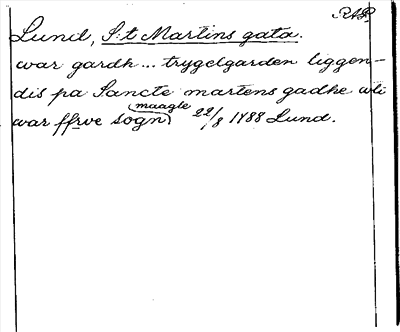 RAP.
Lund, S:t Martins gata.
war gardh... trygelgarden liggen-
dis pa Sancte martens gadhe uti
war ffrve sogn (maagle) 22/8 1488 Lund.